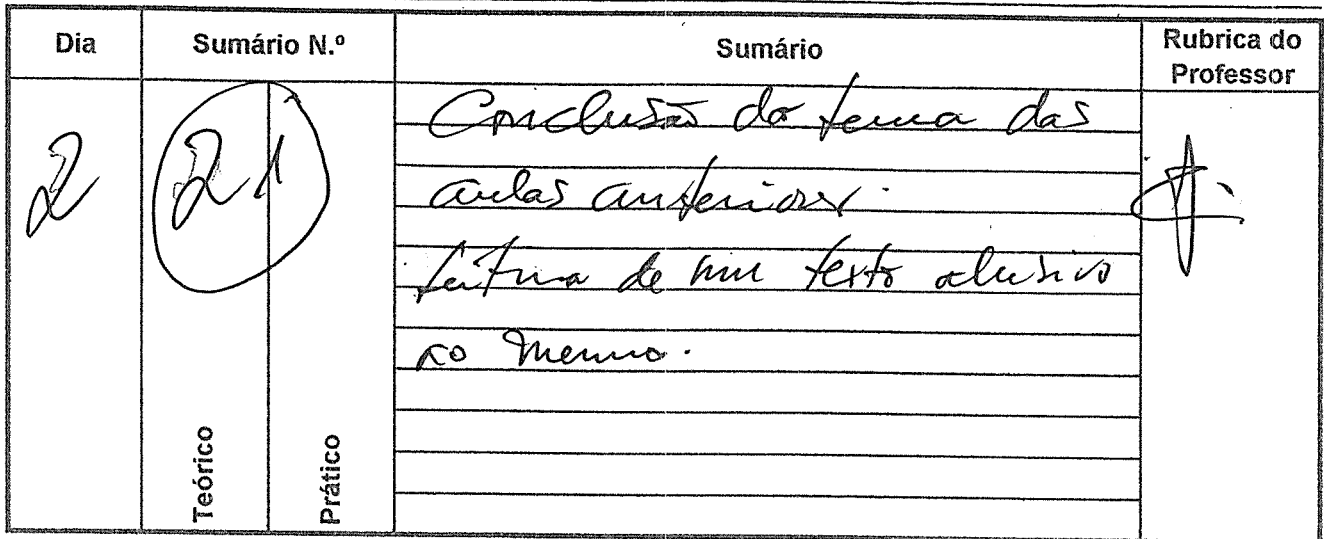 Dia Sumário N.º Sumário Rubrica do Professor
2 21
Conclusão do tema das
aulas anteriores.
Leitura de um texto alusivo
ao mesmo.
Teórico Prático